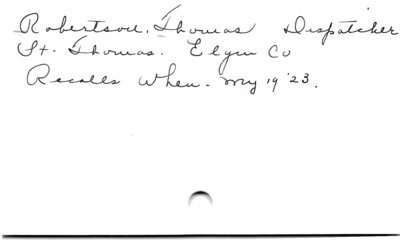 Robertson, Thomas Dispatcher
St. Thomas. Elgin Co
Recalls When - My 19 '23.